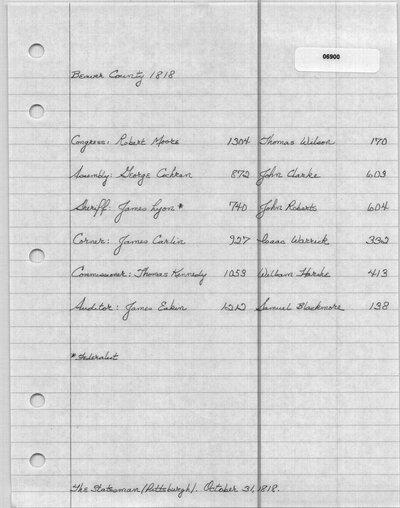 06900
Beaver County 1818
Congress: Robert Moore 1304 Thomas Wilson 170
Assembly: George Cochran 872 John Clarke 603
Sheriff: James Lyon* 740 John Roberts 604
Corner: James Carlin 927 Isaac Warrick 332
Commissioner: Thomas Kennedy 1053 William Harshe 413
Auditor: James Eakin 1212 Samuel Blackmore 138
*Federalist
The Statesman (Pittsburgh). October 31, 1818.